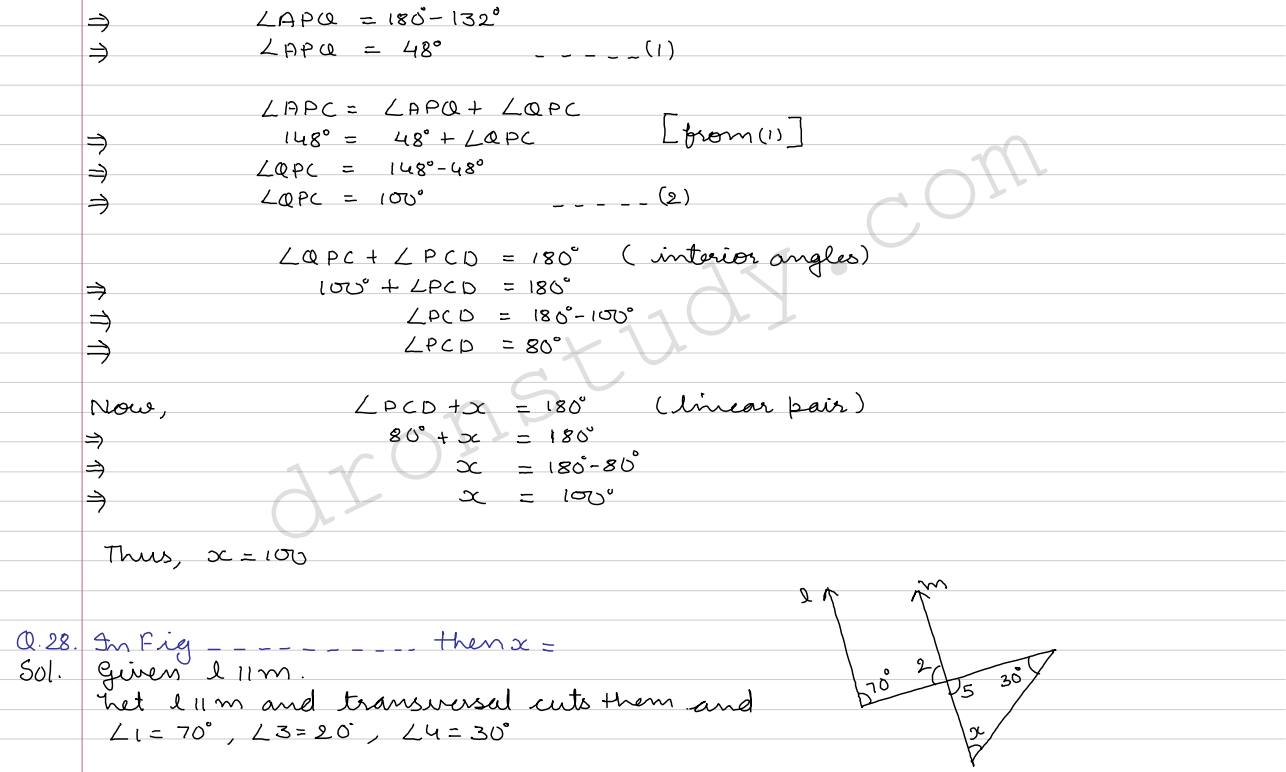 ⇒ ∠APQ = 180° - 132°
⇒ ∠APQ = 48° - - - - - (1)
∠APC = ∠APQ + ∠QPC
⇒ 148° = 48° + ∠QPC [from (1)]
⇒ ∠QPC = 148° - 48°
⇒ ∠QPC = 100° - - - - - (2)
∠QPC + ∠PCD = 180° (interior angles)
⇒ 100° + ∠PCD = 180°
⇒ ∠PCD = 180° - 100°
⇒ ∠PCD = 80°
Now, ∠PCD + x = 180° (linear pair)
⇒ 80° + x = 180°
⇒ x = 180° - 80°
⇒ x = 100°
Thus, x = 100
Q.28. In Fig - - - - - - - - - - - then x =
Sol. Given l || m.
Let l || m and transversal cuts them and
∠1 = 70°, ∠3 = 20°, ∠4 = 30°
l m
70° 2 5 30°
x
dronstudy.com